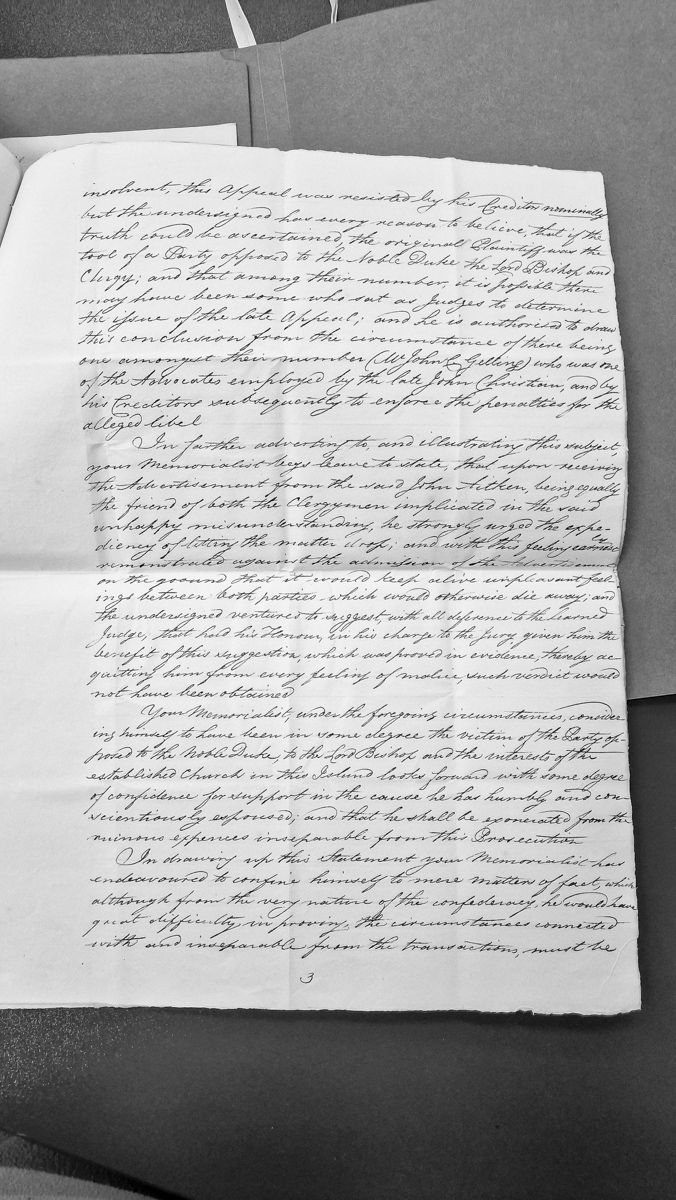 insolvent, this Appeal was resisted by his Creditors nominally
but the undersigned has every reason to believe, that if the
truth could be ascertained the original Plaintiff was the
tool of a Party opposed to the Noble Duke the Lord Bishop and
Clergy; and that among their number, it is possible there
may have been some who sat as Judges to determine
the issue of the late Appeal; and he is authorised to draw
this conclusion from the circumstance of there being
one amongst their number (Mr John C Gelling) who was one
of the Advocates employed by the late John Christian, and by
his Creditors subsequently to enforce the penalties for the
alleged libel
In farther adverting to, and illustrating this subject
your Memorialist begs leave to state, that upon receiving
the Advertisement from the said John Aitken, being equally
the friend of both the Clergymen implicated in the said
unhappy misunderstanding, he strongly urged the expe-
diency of letting the matter drop; and with this feeling earnestly
remonstrated against the admission of the Advertisement
on the ground that it would keep alive unpleasant feel-
ings between both parties which would otherwise die away; and
the undersigned ventures to suggest, with all deference to the learned
Judge, that had his Honour, in his charge to the Jury given him the
benefit of this suggestion, which was proved in evidence, thereby ac-
quitting him from every feeling of malice, such verdict would
not have been obtained
Your Memorialist, under the foregoing circumstances, consider-
ing himself to have been in some degree the victim of the Party op-
posed to the Noble Duke, to the Lord Bishop and the interests of the
established Church in this Island looks forward with some degree
of confidence for support in the cause he has humbly and con-
scientiously espoused; and that he shall be exonerated from the
ruinous expences inseparable from this Prosecution
In drawing up this Statement your Memorialist has
endeavoured to confine himself to mere matters of fact, which
although from the very nature of the confederacy, he would have
great difficulty in proving, the circumstances connected
with and inseparable from the transactions, must be
3